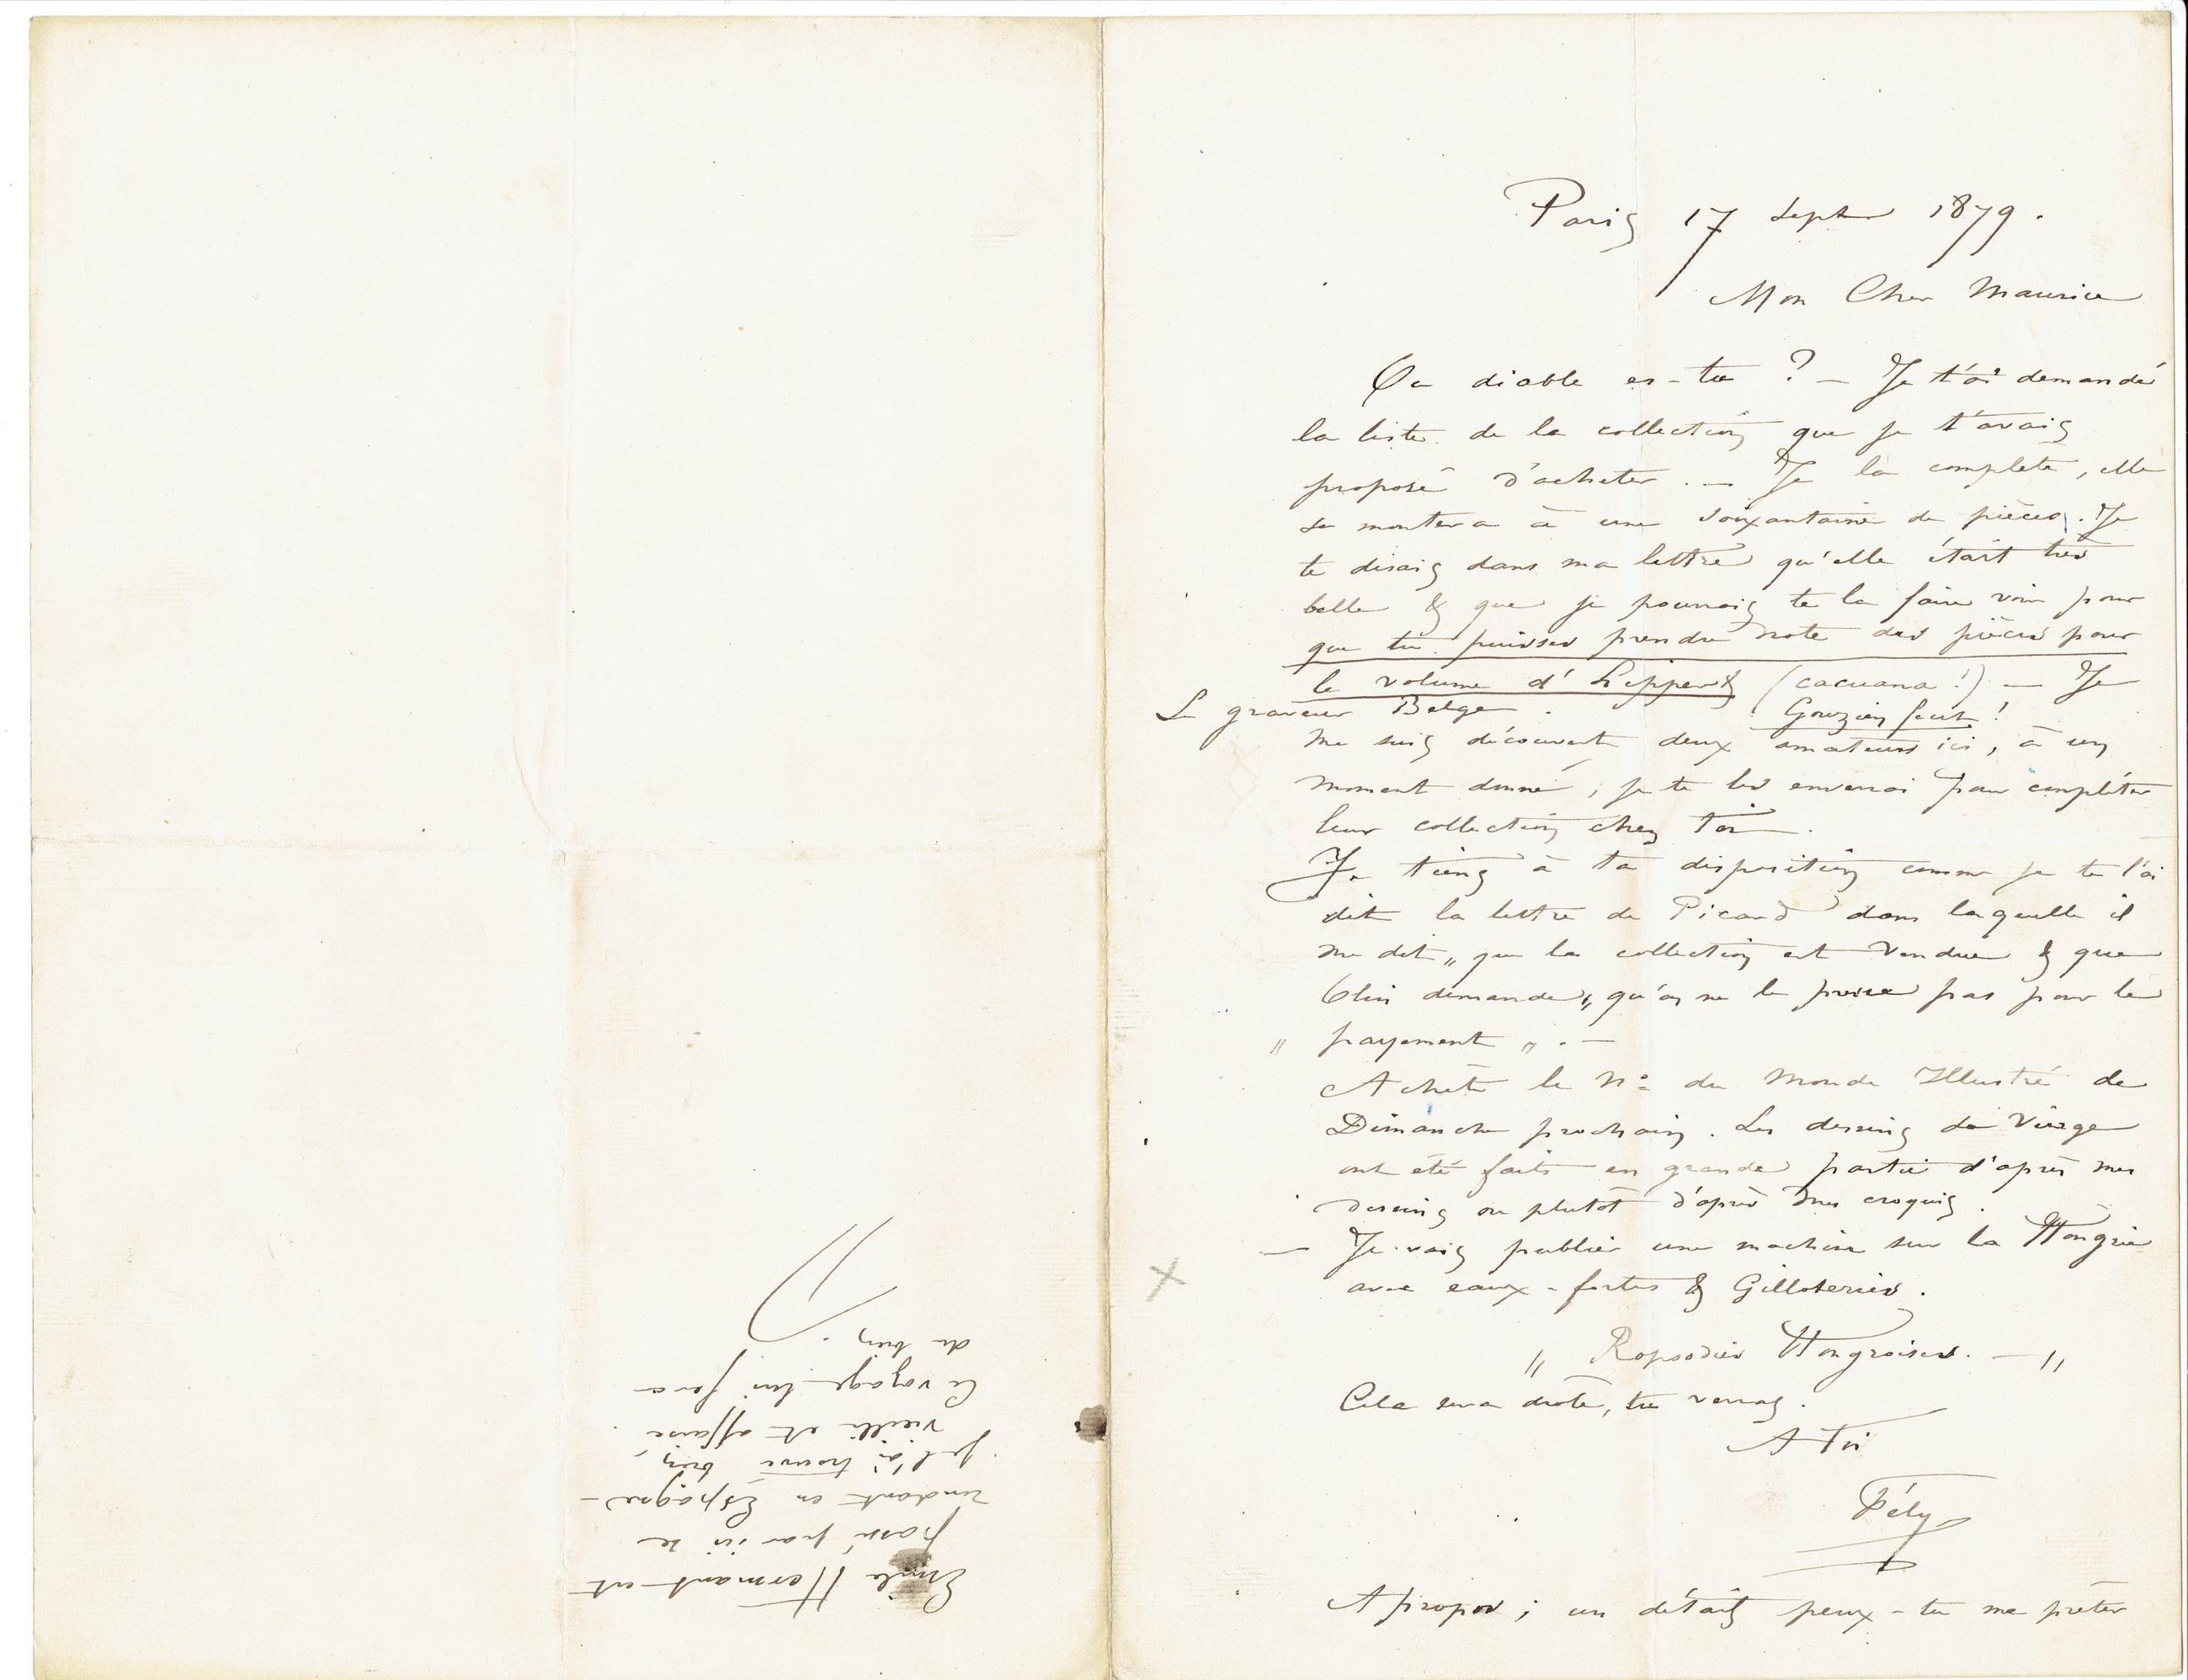 Paris 17 Septr 1879.
Mon Cher Maurice
Ou diable es-tu ? — Je t'ai demandé
la liste de la collection que je t'avais
proposé d'acheter. — Je la complète, elle
se montera à une soixantaine de pièces. Je
te disais dans ma lettre qu'elle était très
belle & que je pourrais te la faire voir pour
que tu puisses prendre note des pièces pour
le volume d'Hippert (cacuana !) — Je
Le graveur Belge. Gouzien fecit !
me suis découvert deux amateurs ici, à un
moment donné, je te les enverrai pour compléter
leur collection chez toi.
Je tiens à ta disposition comme je te l'ai
dit la lettre de Picard dans laquelle il
me dit „ que la collection est vendue & que
Olin demande „ qu'on ne le presse pas pour le
„ payement „. —
Achète le No du Monde Illustré de
Dimanche prochain. Les dessins de Vierge
ont été faits en grande partie d'après mes
dessins ou plutôt d'après mes croquis.
— Je vais publier une machine sur la Hongrie
avec eaux-fortes & Gilloteries.
„ Rapsodies Hongroises. — „
Cela sera drôle, tu verras.
A Toi
Fély
A propos ; un détail peux-tu me prêter
Emile Hermant est
passé par ici se
rendant en Espagne —
je l'ai trouvé bien
vieilli et affaissé.
Ce voyage lui fera
du bien.